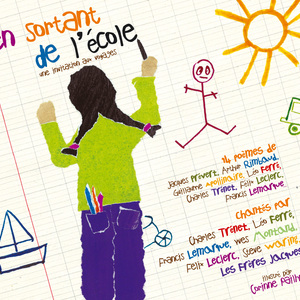 en sortant
de l'école
une invitation aux voyages
14 poèmes de
Jacques Prévert, Arthur Rimbaud,
Guillaume Apollinaire, Léo Ferré,
Charles Trenet, Félix Leclerc,
Francis Lemarque,
chantés par
Charles Trenet, Léo Ferré,
Francis Lemarque, Yves Montand,
Félix Leclerc, Steve Waring,
Les Frères Jacques
illustré par
Corinne